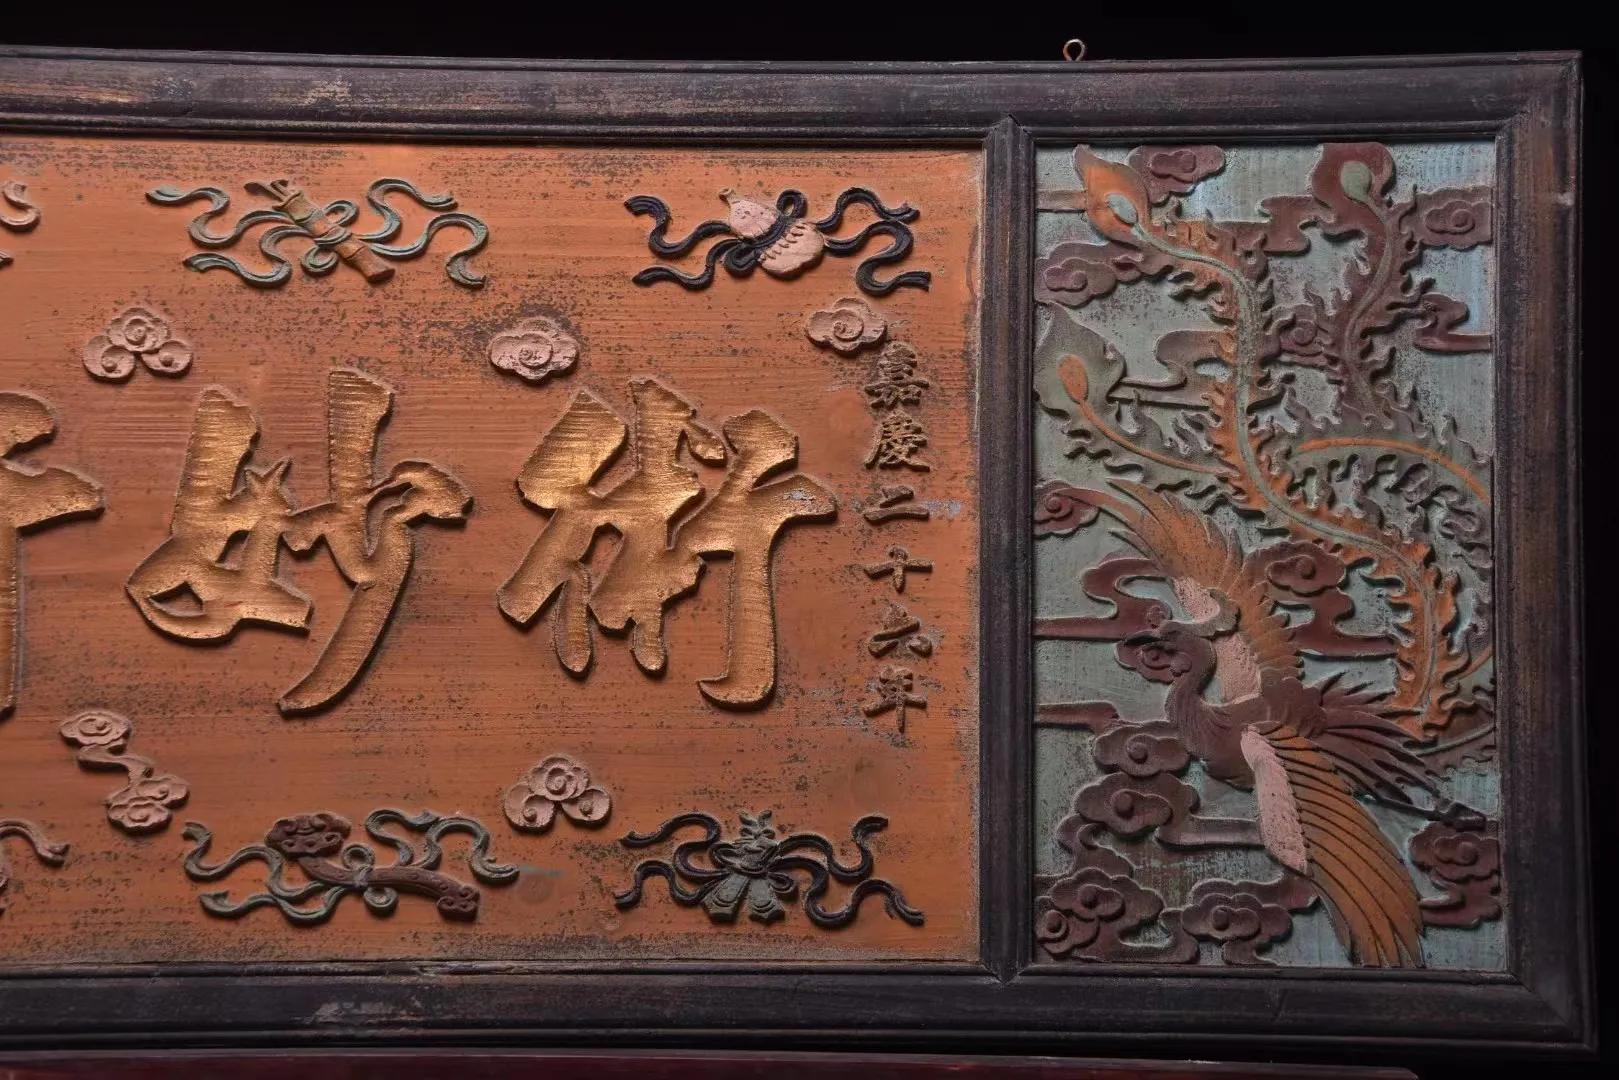 嘉慶二十六年
術妙